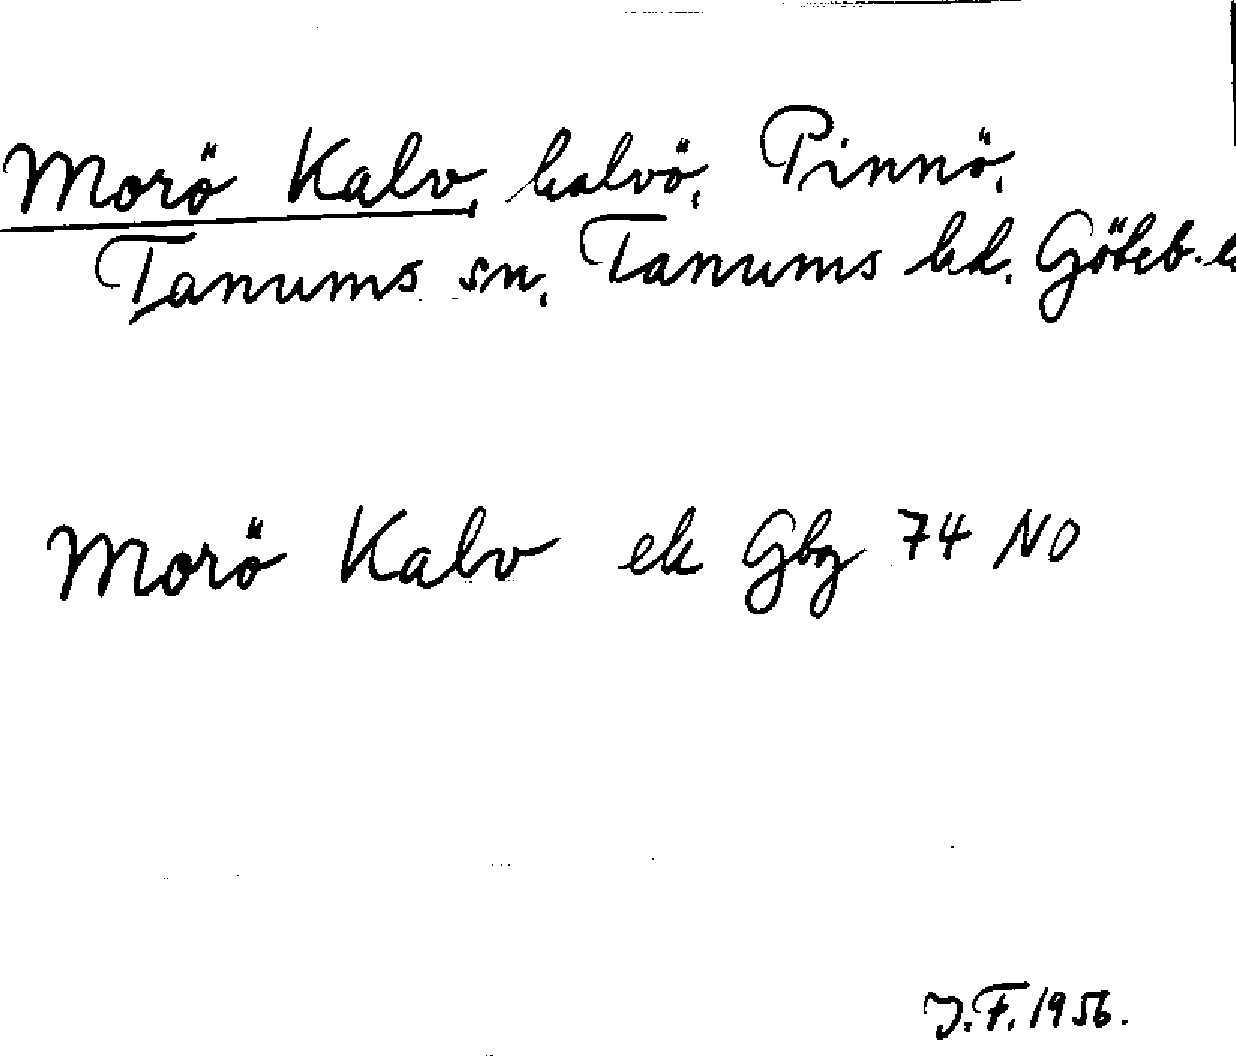 Morö Kalv, halvö, Pinnö,
Tanums sn, Tanums hd, Göteb.
Morö Kalv ek Gbg 74 NO
J.F. 1956.